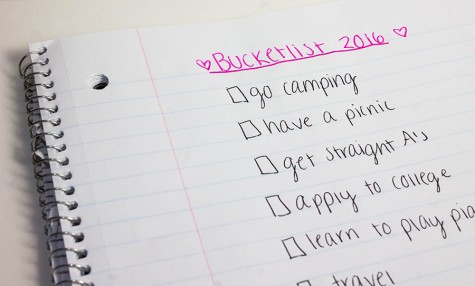 Bucketlist 2016
go camping
have a picnic
get straight A's
apply to college
learn to play
travel